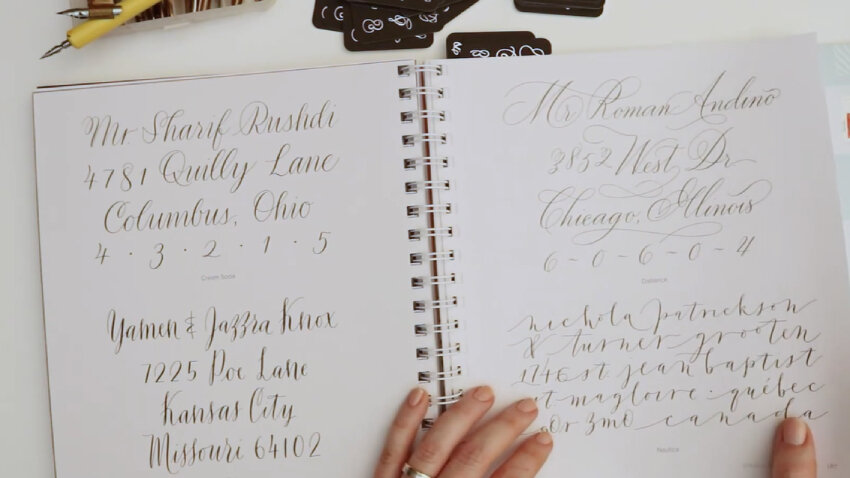 Mr Sharif Rushdi
4781 Quilly Lane
Columbus, Ohio
4 · 3 · 2 · 1 · 5
Cream Soda
Yamen & Jazzra Knox
7225 Poe Lane
Kansas City
Missouri 64102
Mr Roman Andino
3852 West Dr
Chicago, Illinois
6 - 0 - 6 - 0 - 4
nichola patrickson
& turner grooten
1146 st jean baptist
magloire - québec
3m0 canada
Nautica